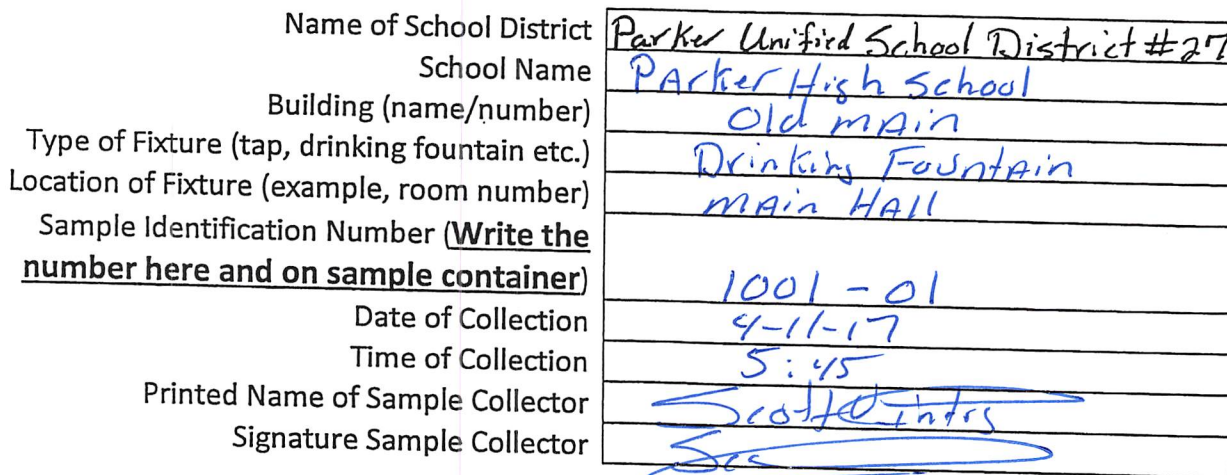 Name of School District Parker Unified School District #27
School Name PArker High School
Building (name/number) Old mAin
Type of Fixture (tap, drinking fountain etc.) Drinking FountAin
Location of Fixture (example, room number) mAin HAll
Sample Identification Number (Write the
number here and on sample container) 1001-01
Date of Collection 4-11-17
Time of Collection 5:45
Printed Name of Sample Collector Scott
Signature Sample Collector